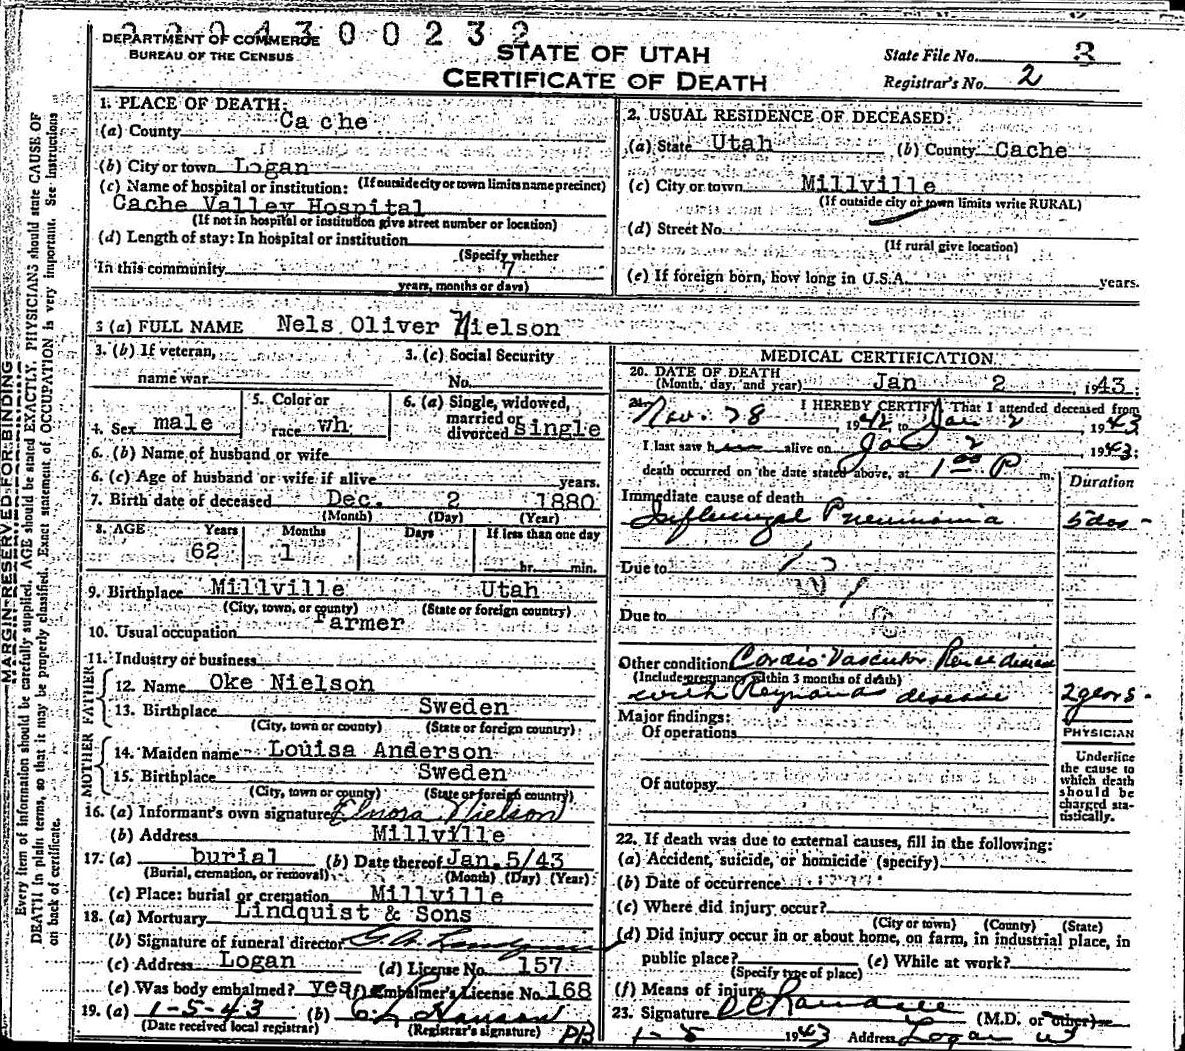 DEPARTMENT OF COMMERCE
BUREAU OF THE CENSUS
0 0 2 3 2
STATE OF UTAH
CERTIFICATE OF DEATH
State File No. 3
Registrar's No. 2
MARGIN RESERVED FOR BINDING
Every item of information should be carefully supplied. AGE should be stated EXACTLY. PHYSICIANS should state CAUSE OF
DEATH in plain terms, so that it may be properly classified. Exact statement of OCCUPATION is very important. See instructions
on back of certificate.
1. PLACE OF DEATH:
(a) County Cache
(b) City or town Logan
(If outside city or town limits name precinct)
(c) Name of hospital or institution:
Cache Valley Hospital
(If not in hospital or institution give street number or location)
(d) Length of stay: In hospital or institution
(Specify whether
In this community 7
years, months or days)
2. USUAL RESIDENCE OF DECEASED:
(a) State Utah (b) County Cache
(c) City or town Millville
(If outside city or town limits write RURAL)
(d) Street No.
(If rural give location)
(e) If foreign born, how long in U.S.A. years.
3 (a) FULL NAME Nels Oliver Nielson
3. (b) If veteran,
name war
3. (c) Social Security
No.
4. Sex male
5. Color or
race wh
6. (a) Single, widowed,
married or
divorced single
6. (b) Name of husband or wife
6. (c) Age of husband or wife if alive years.
7. Birth date of deceased Dec. 2 1880
(Month) (Day) (Year)
8. AGE Years Months Days If less than one day
62 1 hr. min.
9. Birthplace Millville Utah
(City, town, or county) (State or foreign country)
10. Usual occupation Farmer
11. Industry or business
FATHER
12. Name Oke Nielson
13. Birthplace Sweden
(City, town or county) (State or foreign country)
MOTHER
14. Maiden name Louisa Anderson
15. Birthplace Sweden
(City, town or county) (State or foreign country)
16. (a) Informant's own signature Elnora Nielson
(b) Address Millville
17. (a) burial (b) Date thereof Jan. 5/43
(Burial, cremation, or removal) (Month) (Day) (Year)
(c) Place: burial or cremation Millville
18. (a) Mortuary Lindquist & Sons
(b) Signature of funeral director
(c) Address Logan (d) License No. 157
(e) Was body embalmed? yes Embalmer's License No. 168
19. (a) 1-5-43 (b) Hanson
(Date received local registrar) (Registrar's signature) PB
MEDICAL CERTIFICATION
20. DATE OF DEATH
(Month, day, and year) Jan 2 1943;
21. I HEREBY CERTIFY That I attended deceased from
Nov. 28 1942 to Jan 2 1943
I last saw him alive on Jan 2 1943;
death occurred on the date stated above, at 1 00 P m.
Duration
Immediate cause of death
Influenzal Pneumonia 5 dos-
Due to
Due to
Other condition Cardio-Vascular Renal disease
(Include pregnancy within 3 months of death)
with Reynauds disease 2 years-
Major findings:
Of operations
Of autopsy
PHYSICIAN
Underline
the cause to
which death
should be
charged sta-
tistically.
22. If death was due to external causes, fill in the following:
(a) Accident, suicide, or homicide (specify)
(b) Date of occurrence
(c) Where did injury occur?
(City or town) (County) (State)
(d) Did injury occur in or about home, on farm, in industrial place, in
public place? (e) While at work?
(Specify type of place)
(f) Means of injury
23. Signature (M.D. or other)
1-5 1943 Address Logan